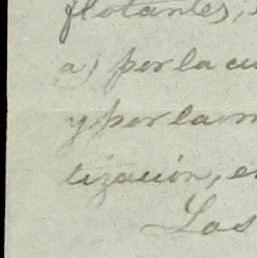 flotantes,
a) por la cu
y por la m
lización, e
Los